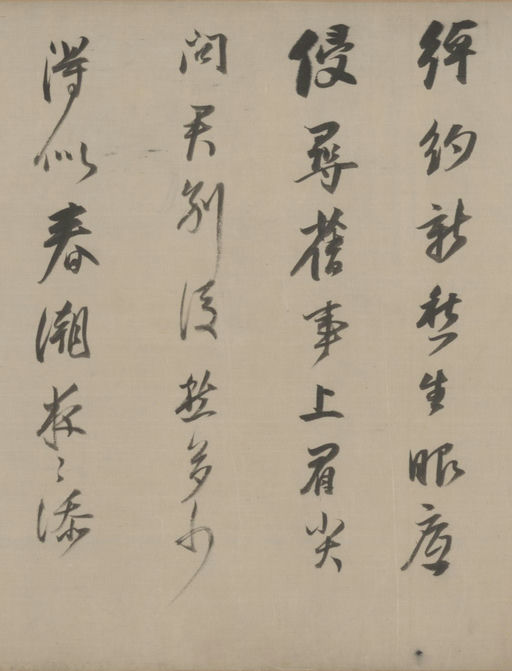 綽約新愁生眼底
侵尋舊事上眉尖
問君別後愁多少
得似春潮夜〻添